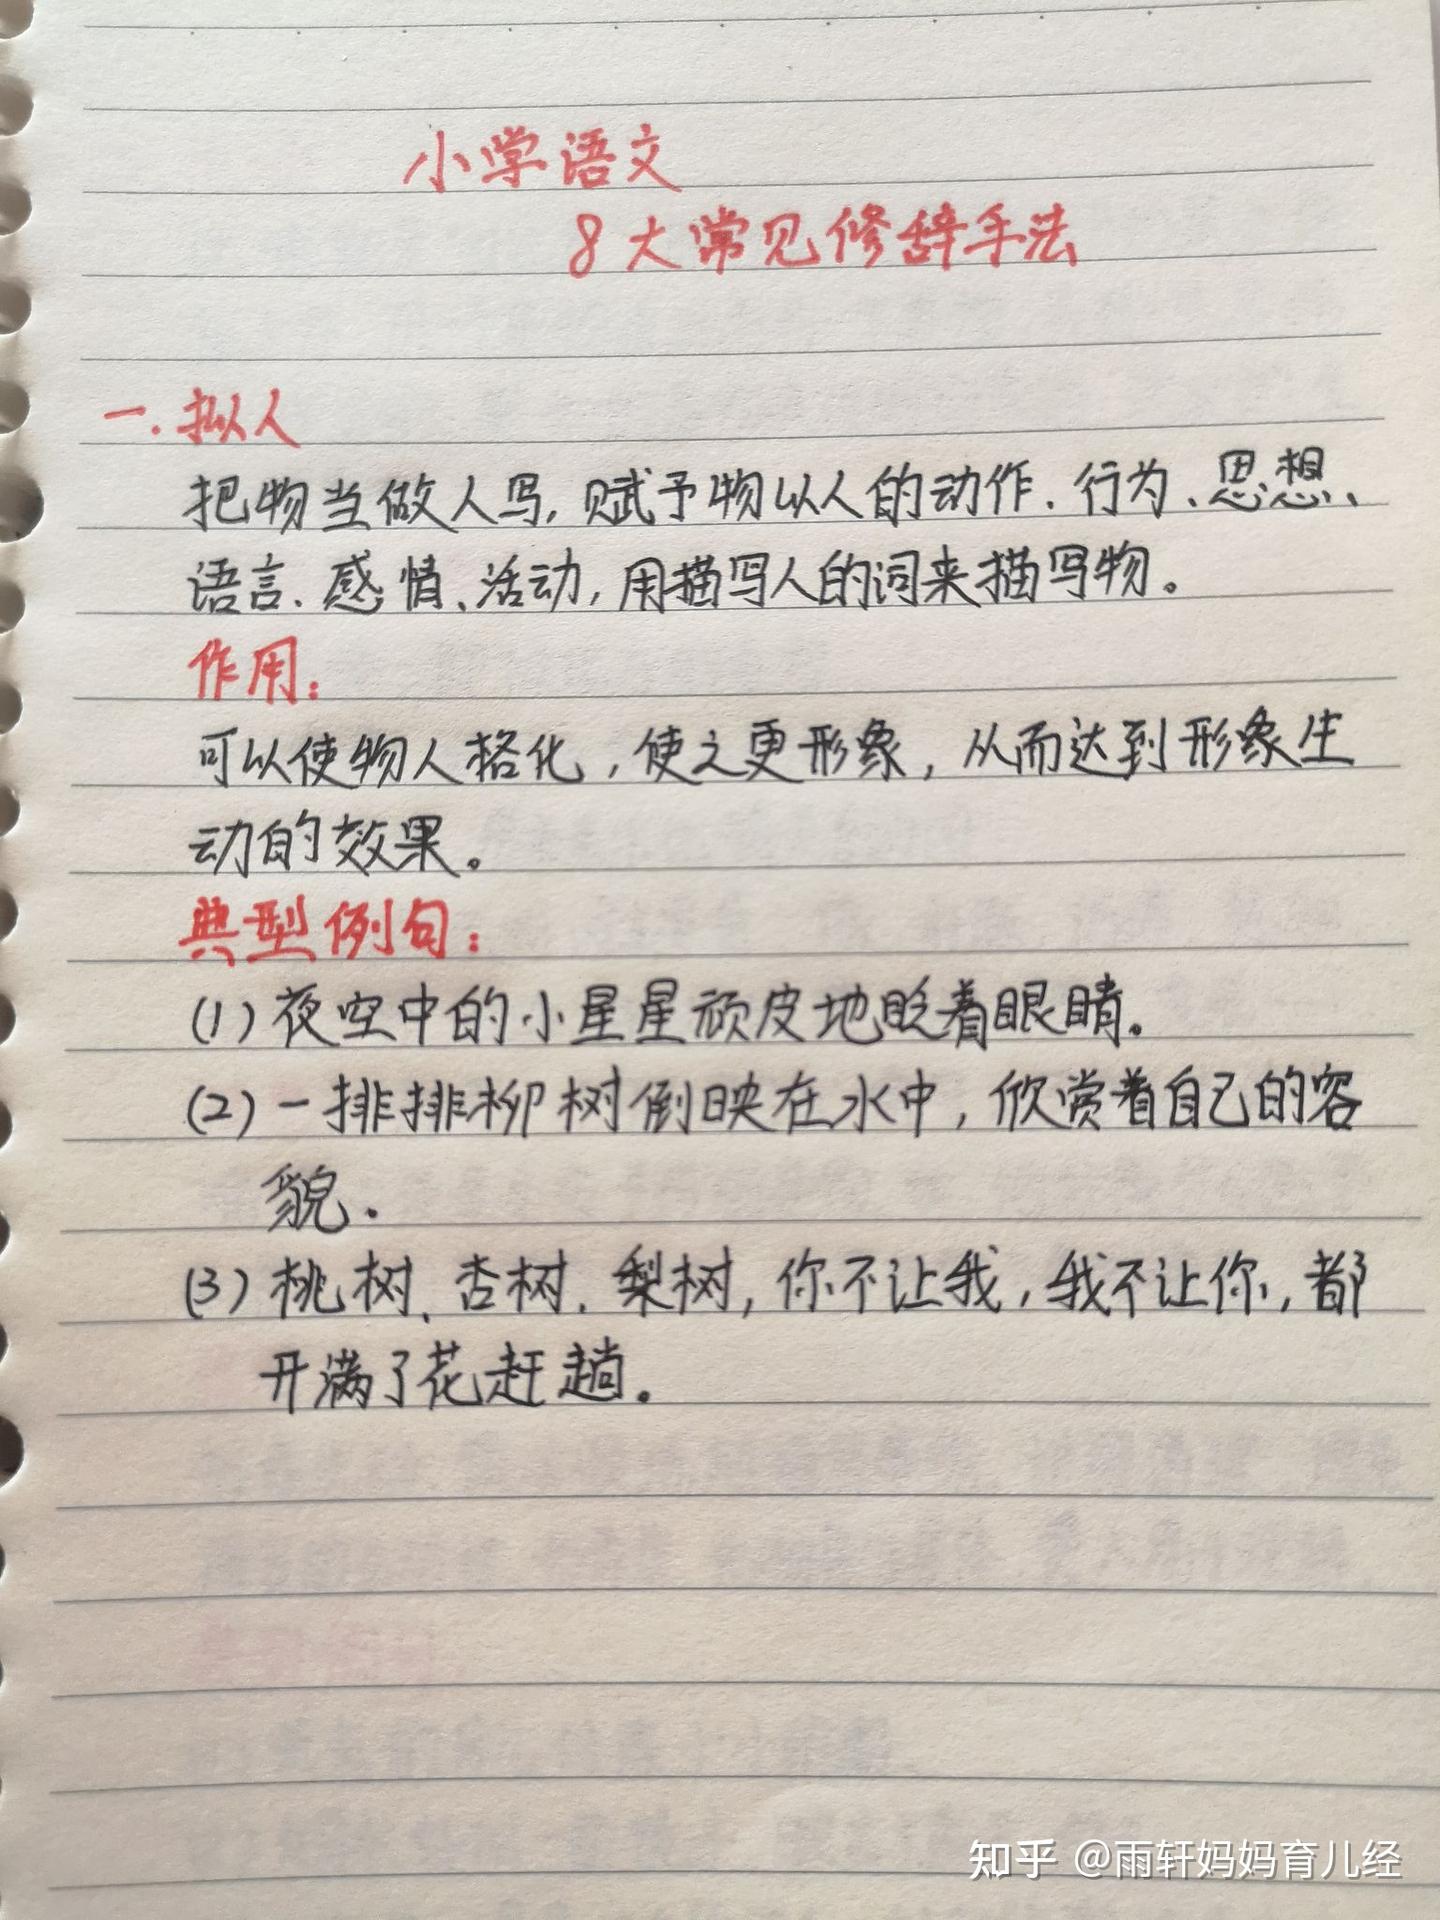 小学语文
8大常见修辞手法
一.拟人
把物当做人写,赋予物以人的动作、行为、思想、
语言、感情、活动,用描写人的词来描写物。
作用:
可以使物人格化,使之更形象,从而达到形象生
动的效果。
典型例句:
(1)夜空中的小星星顽皮地眨着眼睛。
(2)一排排柳树倒映在水中,欣赏着自己的容
貌.
(3)桃树、杏树、梨树,你不让我,我不让你,都
开满了花赶趟。
知乎 @雨轩妈妈育儿经